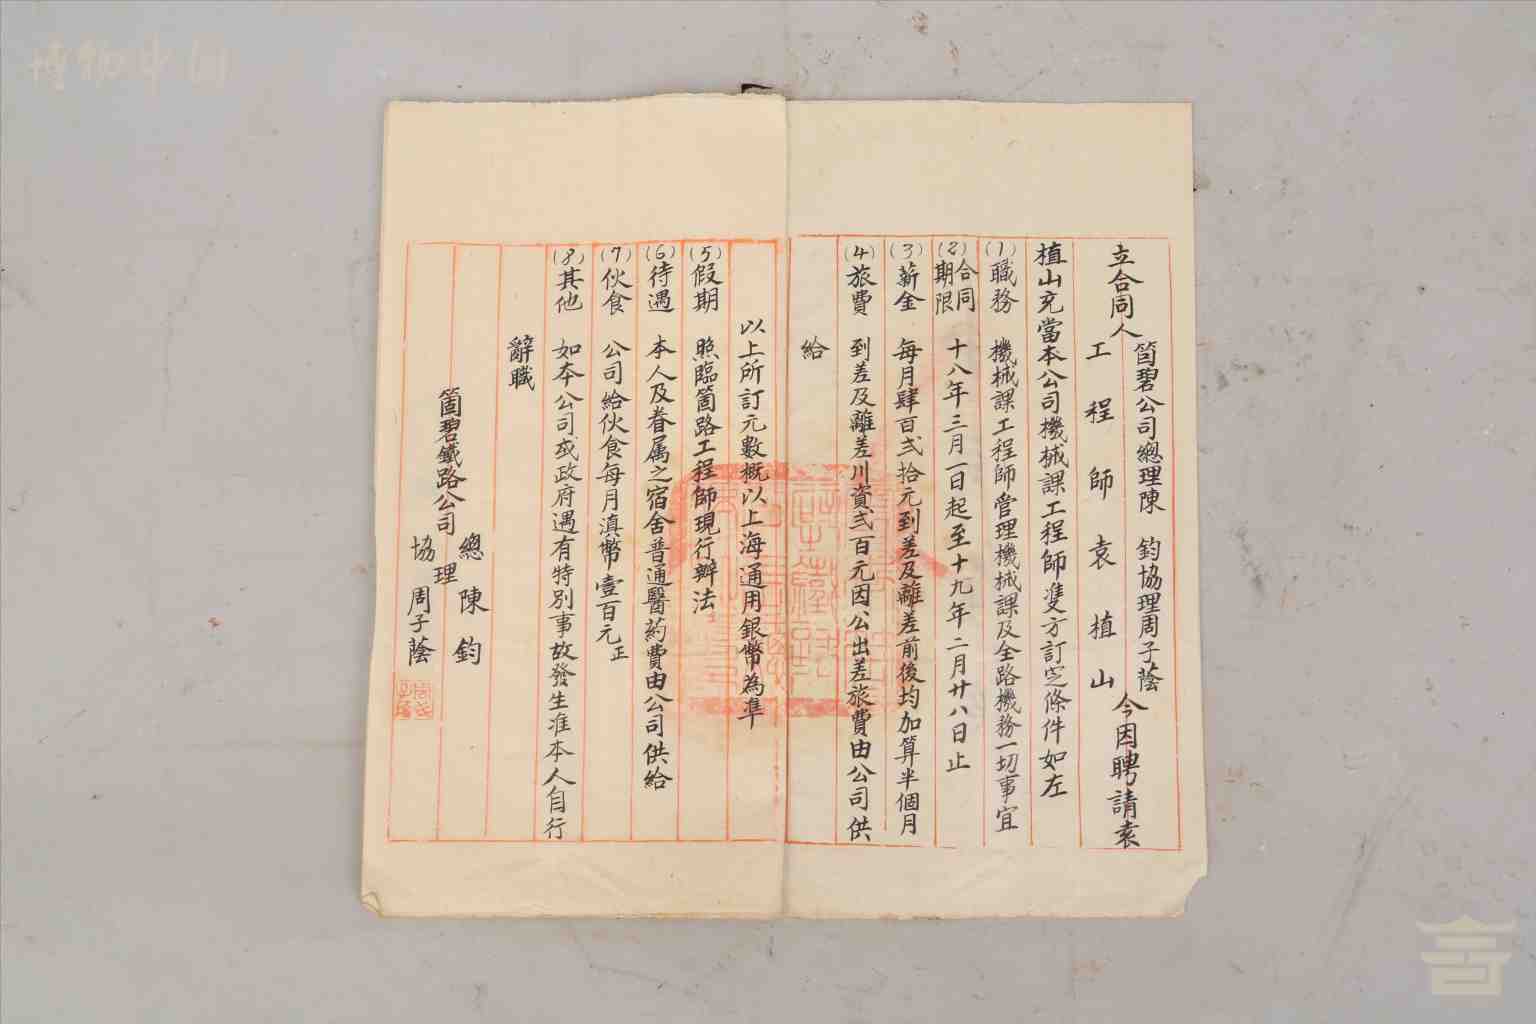 立合同人 箇碧公司總理陳 鈞協理周子蔭 今因聘請袁
工程師袁植山
植山充當本公司機械課工程師雙方訂定條件如左
(1)職務 機械課工程師管理機械課及全路機務一切事宜
(2)合同期限 十八年三月一日起至十九年二月廿八日止
(3)薪金 每月肆百弍拾元到差及離差前後均加算半個月
(4)旅費 到差及離差川資弍百元因公出差旅費由公司供
給
以上所訂元數概以上海通用銀幣為準
(5)假期 照臨箇路工程師現行辦法
(6)待遇 本人及眷属之宿舍普通醫葯費由公司供給
(7)伙食 公司給伙食每月滇幣壹百元正
(8)其他 如本公司或政府遇有特別事故發生准本人自行
辭職
箇碧鐵路公司 總理 陳鈞
協理 周子蔭
博物中国